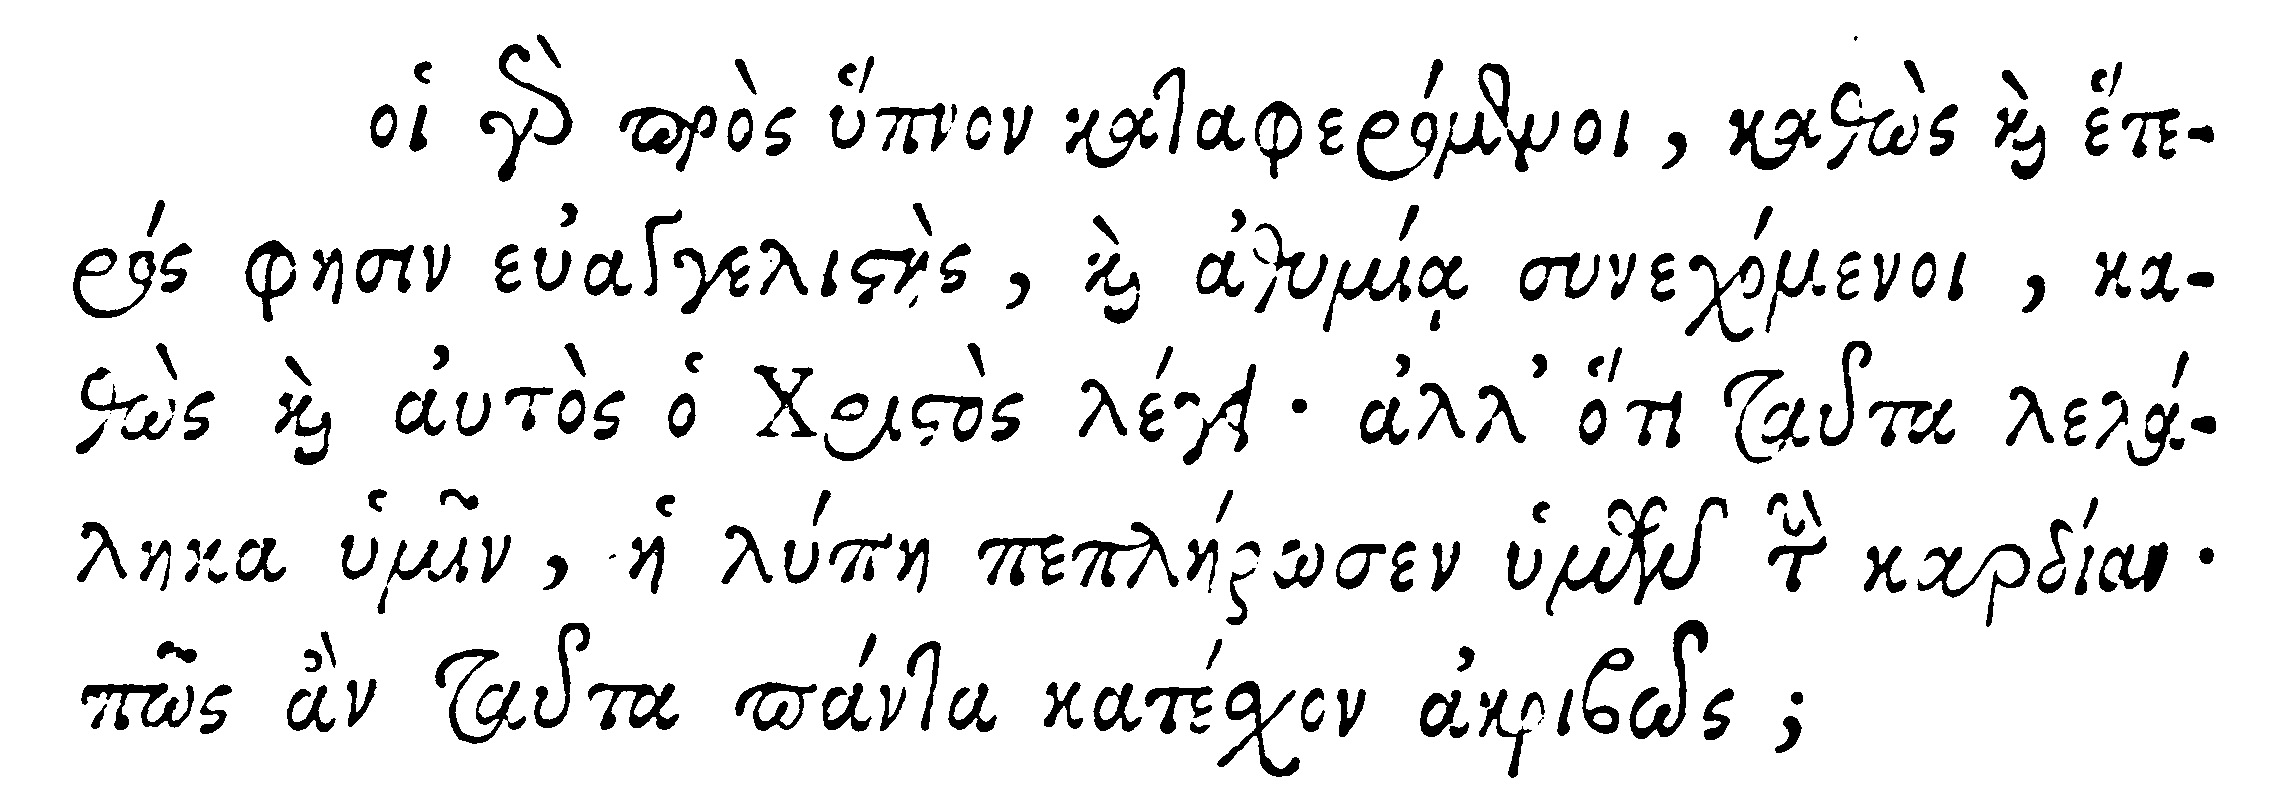 οἱ γὰρ πρὸς ὕπνον καταφερόμενοι, καθὼς καὶ ἕτε-
ρός φησιν εὐαγγελιστὴς, καὶ ἀθυμίᾳ συνεχόμενοι, κα-
θὼς καὶ αὐτὸς ὁ Χριστὸς λέγει· ἀλλ’ ὅτι ταῦτα λελά-
ληκα ὑμῖν, ἡ λύπη πεπλήρωσεν ὑμῶν τὴν καρδίαν·
πῶς ἂν ταῦτα πάντα κατέσχον ἀκριβῶς;